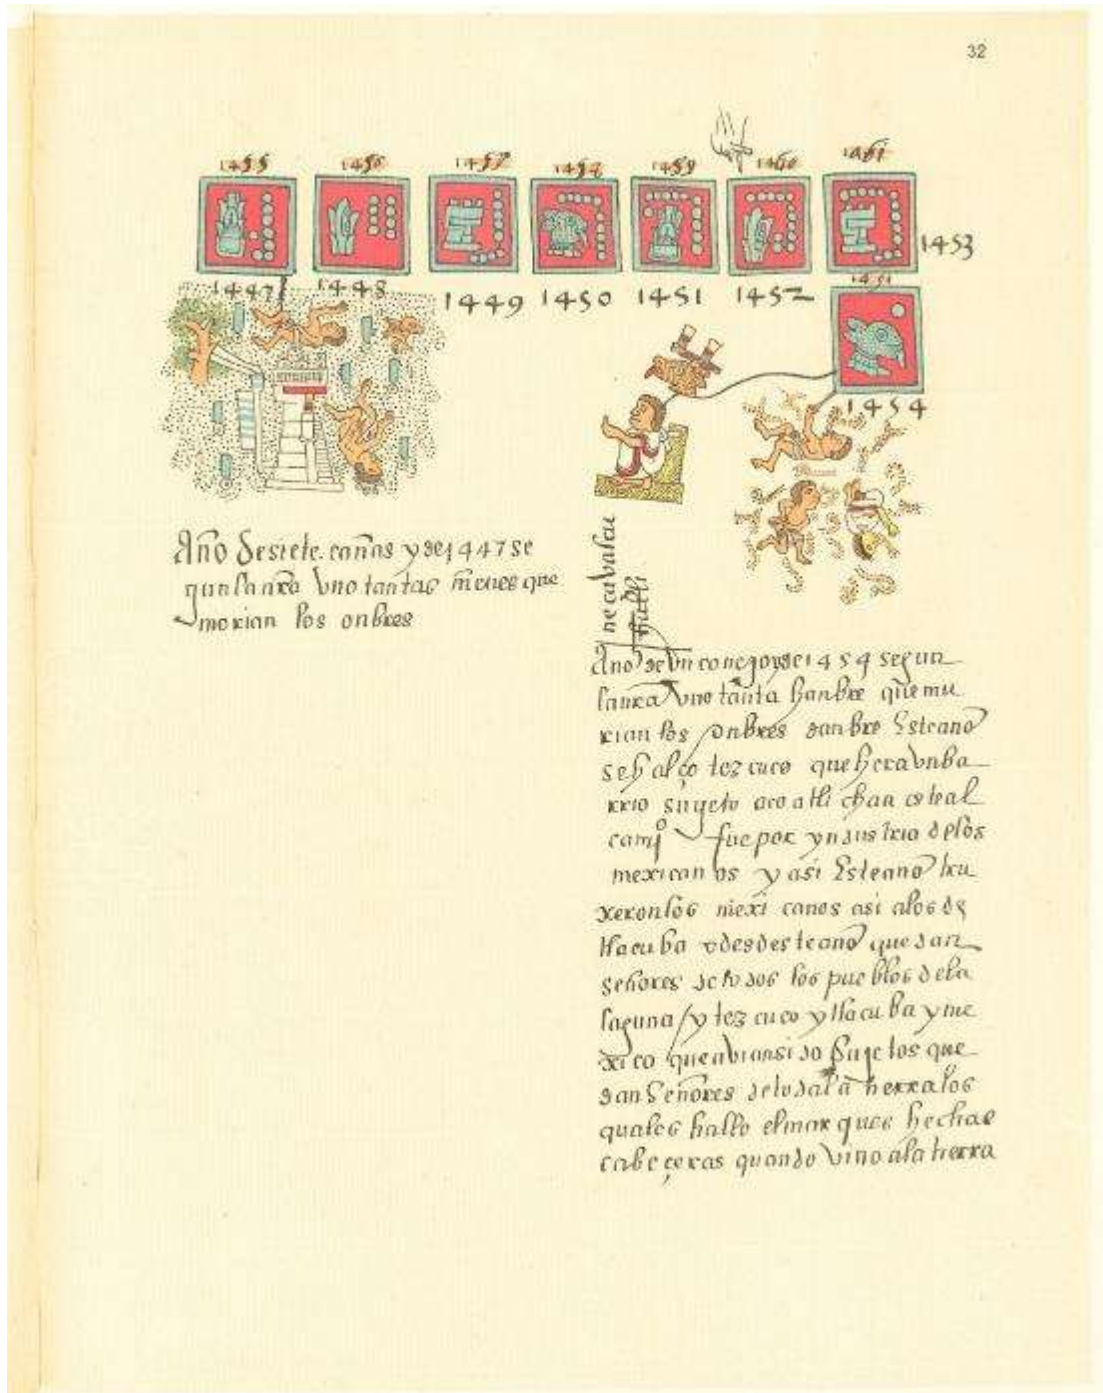 32
1455 1456 1457 1458 1459 1460 1461
1453
1447 1448 1449 1450 1451 1452
1454
Año de siete cañas y de 1447 se
gun la nra uno tantas nieues que
morian los onbres
neçavalcu
Año de un conejo y de 1454 segun
la nra uno tanta hanbre que mu
rian los onbres danbre Este año
se halço tezcuco que hera un ba
rrio sugeto a coatlichan este al
camiº fue por yndustria de los
mexicanos y asi Este año tru
xeron los mexicanos asi a los de
tlacuba desde este año quedan
señores de todos los pueblos de la
laguna / y tezcuco y tlacuba y me
xico que abian sido sugetos que
dan Señores de toda la tierra los
quales hallo el marques hechas
cabeçeras quando vino a la tierra